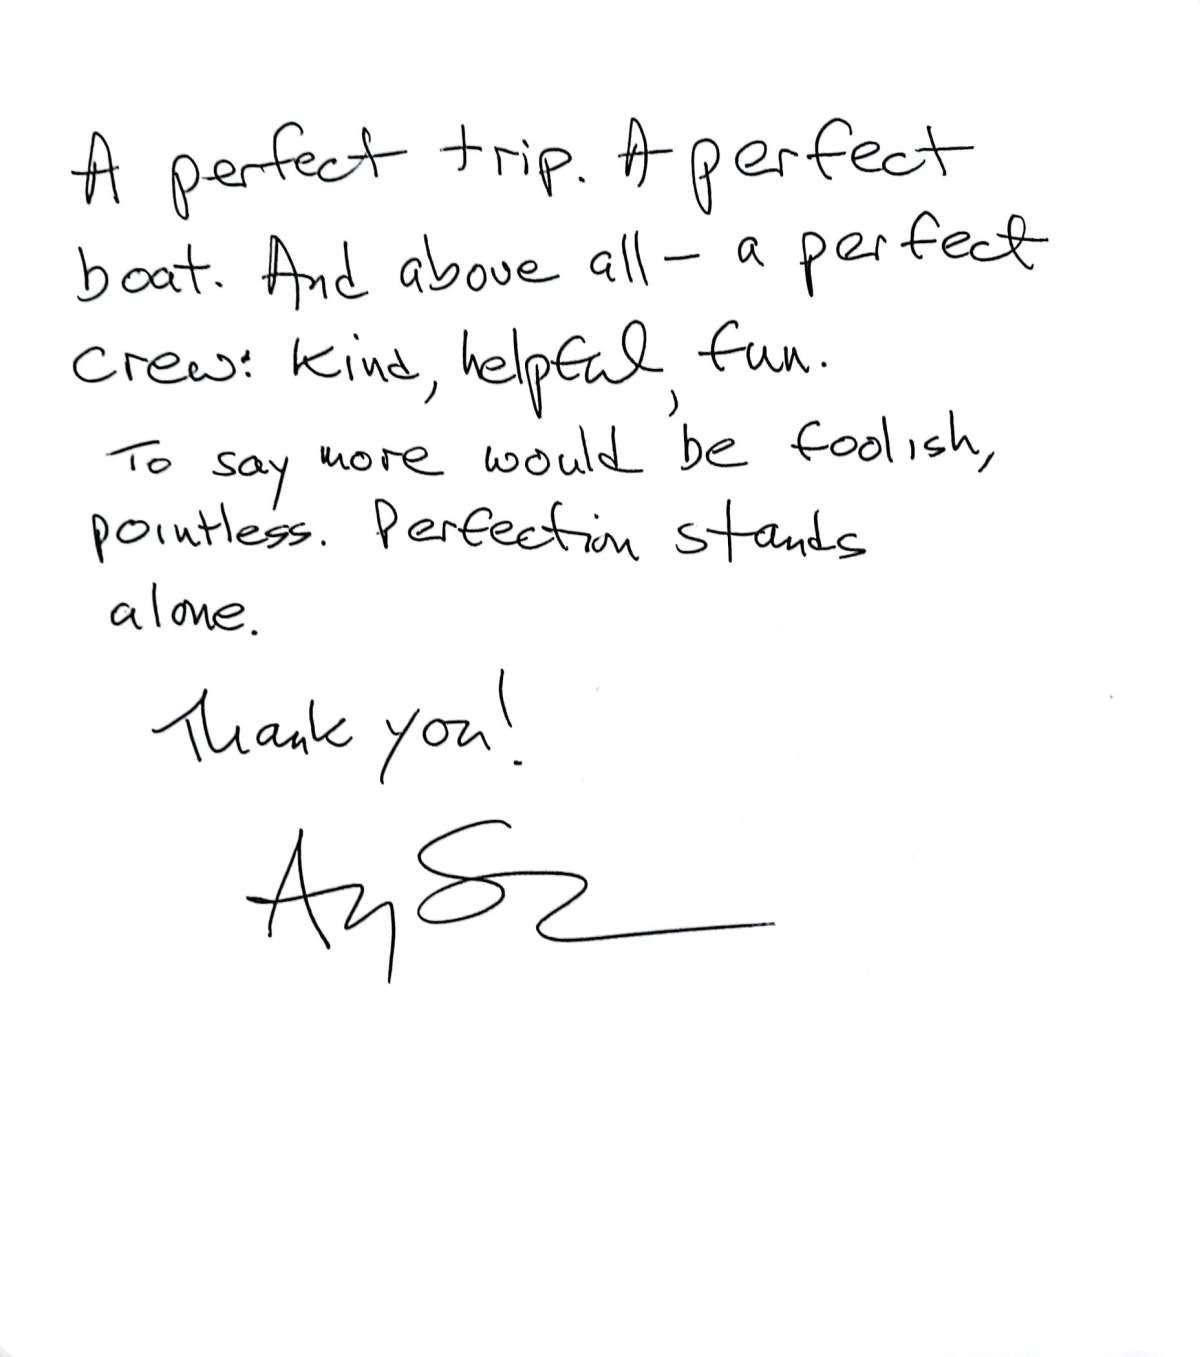 A perfect trip. A perfect
boat. And above all – a perfect
crew: kind, helpful, fun.
To say more would be foolish,
pointless. Perfection stands
alone.
Thank you!